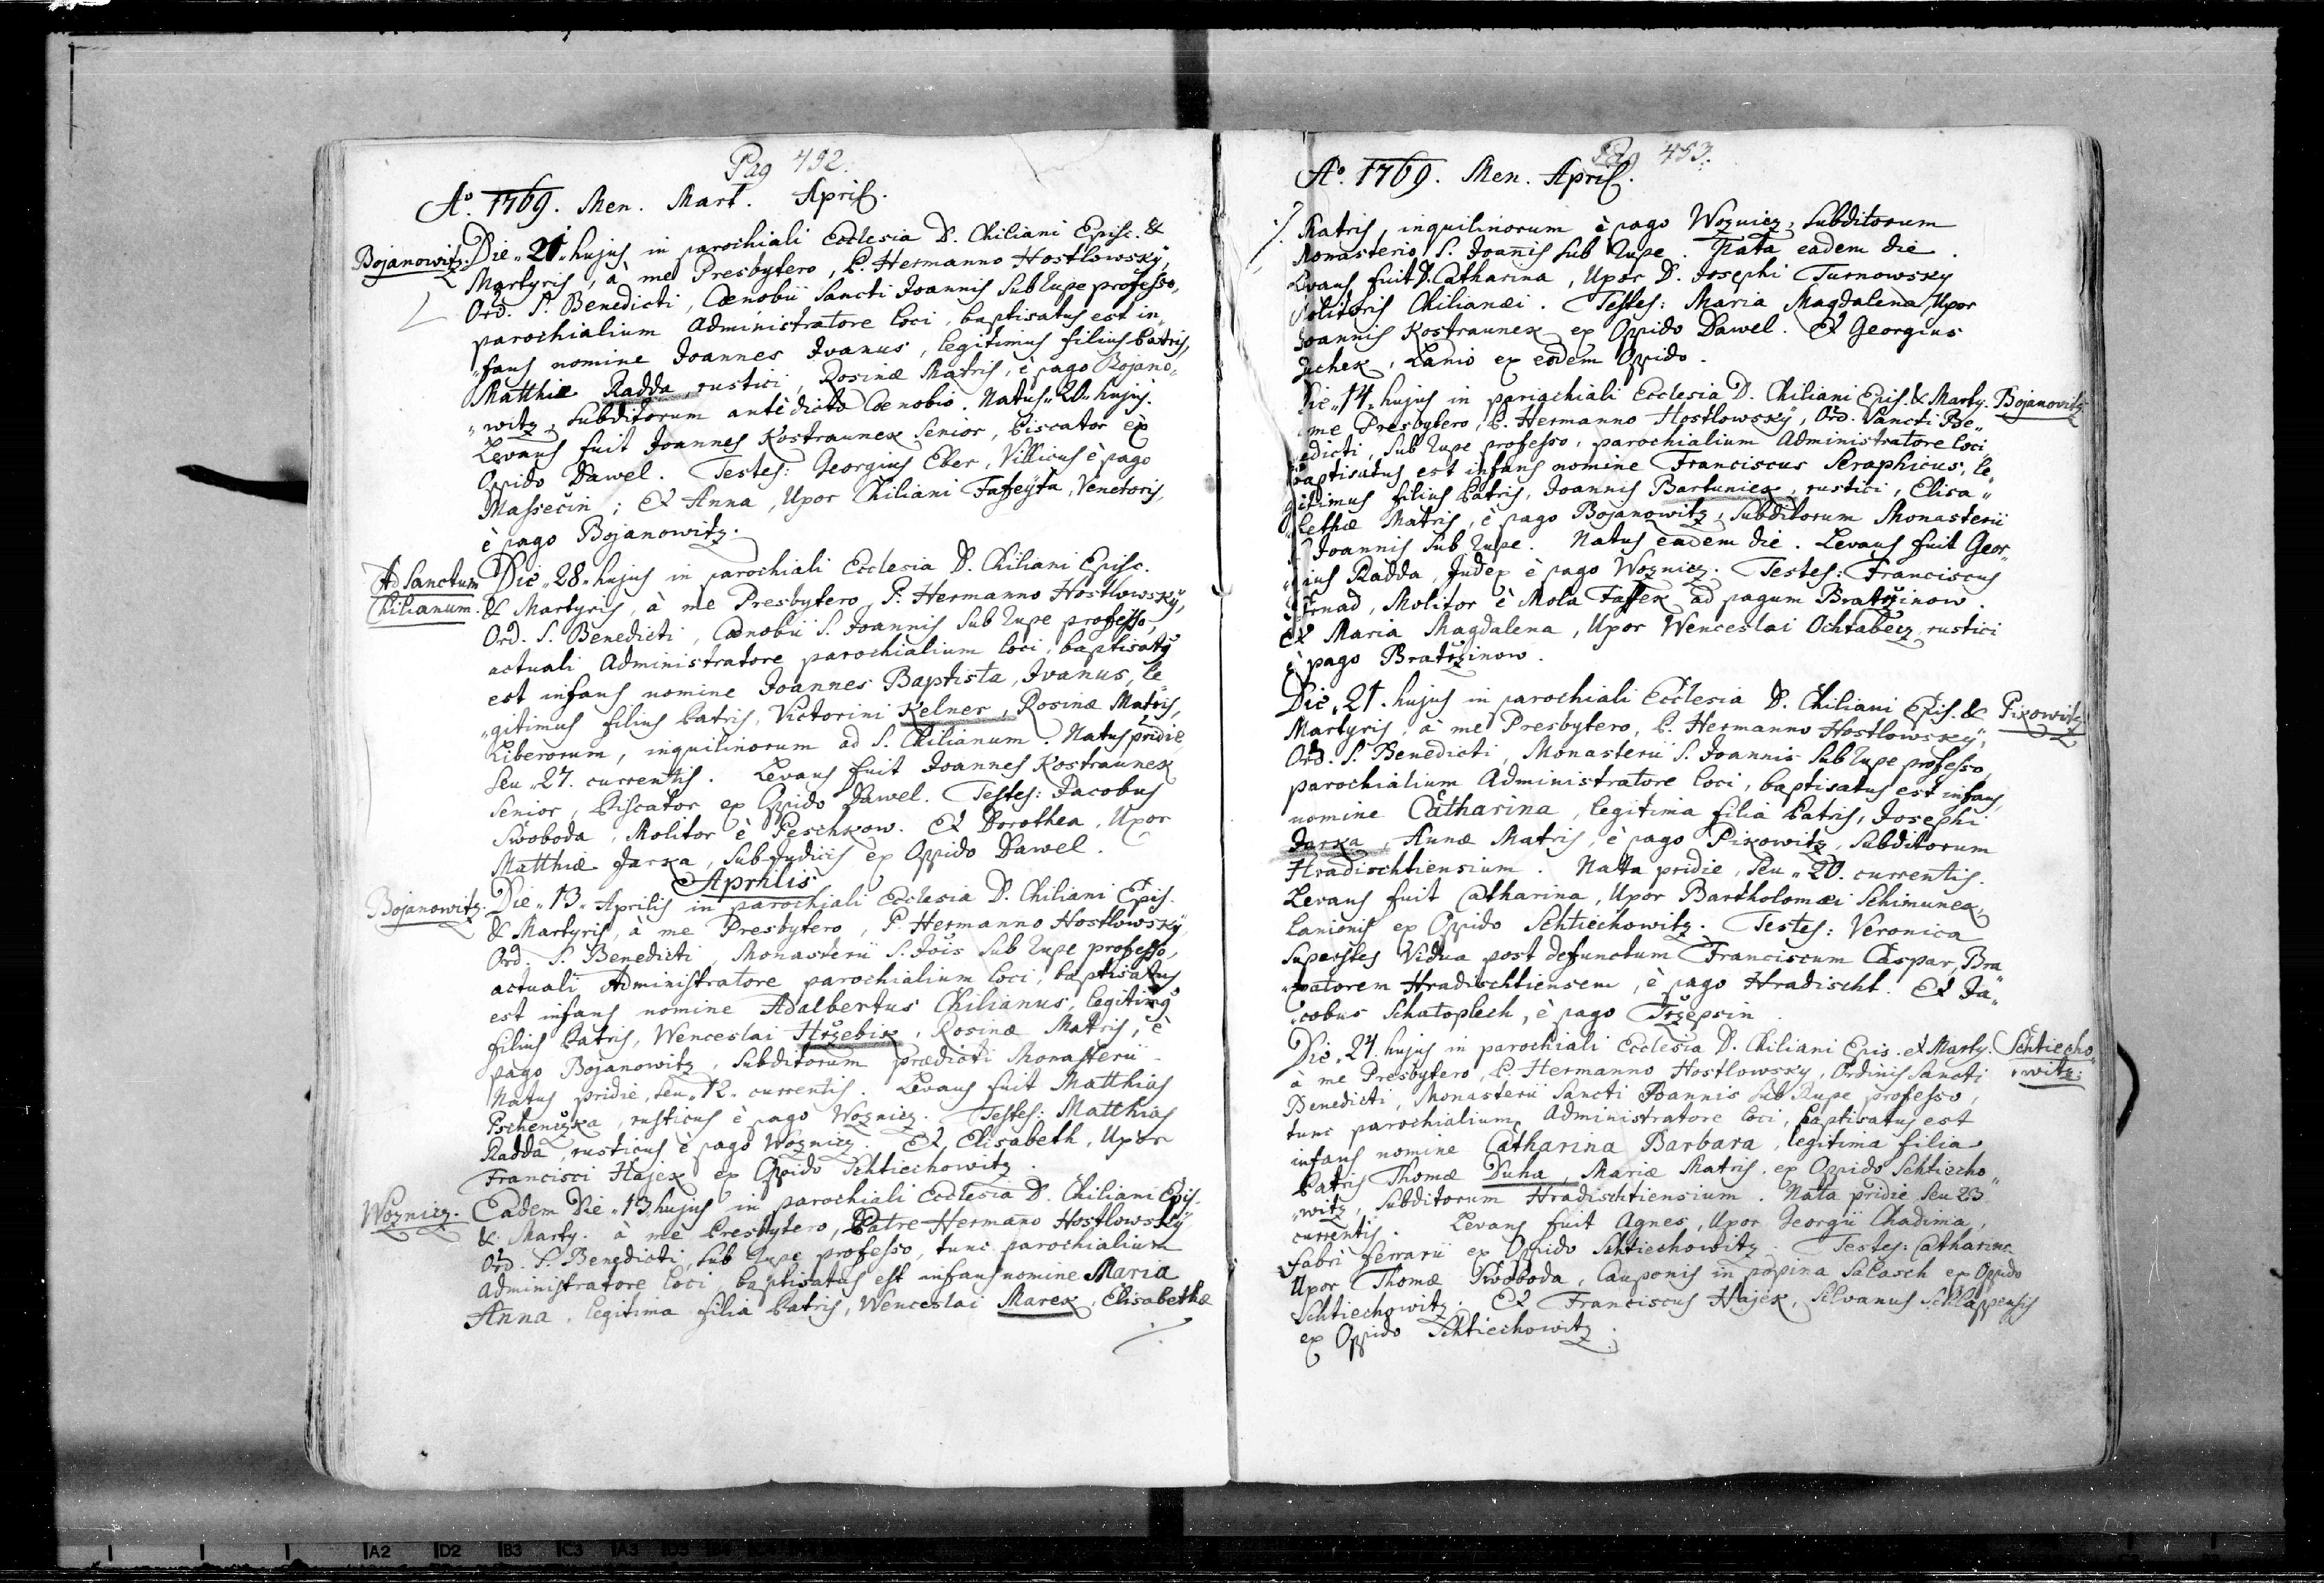 Pag 492.
Aº. 1769. Men. Mart. April.
Bojanowitz. Die „21„ hujus in parochiali Ecclesia D. Chiliani Episc. &
Martyris, à me Presbytero, P. Hermanno Hostlowskÿ,
Ord. S. Benedicti, Cœnobii Sancti Joannis Sub Rupe professo,
parochialium Administratore loci, baptisatus est in„
„fans nomine Joannes Ivanus, legitimus filius Patris,
Matthiæ Radda, rustici, Rosinæ Matris, è pago Bojano„
„witz, Subditorum antèdicto Cœnobio. Natus „20„ hujus.
Levans fuit Joannes Kostraunek Senior, Piscator ex
Oppido Dawel. Testes: Georgius Eber, Villicus è pago
Massečin; Et Anna, Uxor Chiliani Faffeÿta, Venetoris,
è pago Bojanowitz.
Ad Sanctum Chilianum. Die „28„ hujus in parochiali Ecclesia D. Chiliani Episc.
& Martyris, à me Presbytero P. Hermanno Hostlowskÿ,
Ord. S. Benedicti, Cœnobii S. Joannis Sub Rupe professo,
actuali Administratore parochialium loci, baptisatus
est infans nomine Joannes Baptista, Ivanus, le
„gitimus filius Patris, Victorini Kelner, Rosinæ Matris,
Liberorum, inquilinorum ad S. Chilianum. Natus pridie
seu „27. currentis. Levans fuit Joannes Kostraunek
Senior, Piscator ex Oppido Dawel. Testes: Jacobus
Swoboda, Molitor è Peschkow. Et Dorothea, Uxor
Matthiæ Jarka, Sub-Judicis ex Oppido Dawel.
Aprilis
Bojanowitz. Die „13„ Aprilis in parochiali Ecclesia D. Chiliani Epis.
& Martyris, à me Presbytero, P. Hermanno Hostlowskÿ,
Ord. S. Benedicti, Monasterii S. Jois Sub Rupe professo,
actuali Administratore parochialium loci, baptisatus
est infans nomine Adalbertus Chilianus, legitimus
filius Patris, Wenceslai Hržebik, Rosinæ Matris, è
pago Bojanowitz, Subditorum prædicti Monasterii.
Natus pridie, seu „12„ currentis. Levans fuit Matthias
Pscheniczka, rusticus è pago Woznicz. Testes: Matthias
Radda, rusticus è pago Woznicz. Et, Elisabeth, Uxor
Francisci Hajek ex Oppido Schtiechowitz.
Woznicz. Eadem Die „13 hujus in parochiali Ecclesia D. Chiliani Epis.
& Marty. à me Presbytero, Patre Hermano Hostlowskÿ
Ord. S. Benedicti, Sub Rupe professo, tunc parochialium
Administratore loci, baptisatus est infans nomine Maria
Anna, legitima filia Patris, Wenceslai Marek, Elisabethæ
./.
Pag 493.
Aº. 1769. Men. April.
./. Matris, inquilinorum è pago Woznicz, Subditorum
Monasterio S. Joannis Sub Rupe. Nata eadem die.
Levans fuit D. Catharina, Uxor D. Josephi Turnowsky
Molitoris Chilianæi. Testes: Maria Magdalena, Uxor
Joannis Kostraunek ex Oppido Dawel. Et Georgius
Juchek, Lanio ex eodem Oppido.
Die „14„ hujus in pariachiali Ecclesia D. Chiliani Epis. & Marty. Bojanovitz
me Presbytero, P. Hermanno Hostlowskÿ, Ord. Sancti Be„
edicti, Sub Rupe professo, parochialium Administratore loci
baptisatus est infans nomine Franciscus Seraphicus, le
gitimus filius Patris, Joannis Bartunick, rustici, Elisa„
„bethæ Matris, è pago Bojanowitz, Subditorum Monasterii
Joannis Sub Rupe. Natus eadem die. Levans fuit Geor„
gius Radda, Judex è pago Woznicz. Testes: Franciscus
Molitor è Mola Faffek ad pagum Bratržinow.
Et Maria Magdalena, Uxor Wenceslai Ochtabecz, rustici
è pago Bratržinow.
Die „21. hujus in parochiali Ecclesia D. Chiliani Epis. & Pikowitz
Martyris, à me Presbytero, P. Hermanno Hostlowskÿ,
Ord. S. Benedicti, Monasterii S. Joannis Sub Rupe professo,
parochialium Administratore loci, baptisatus est infans,
nomine Catharina, legitima filia Patris, Josephi
Jarka, Annæ Matris, è pago Pikowitz, Subditorum
Hradischtiensium. Natta pridie, seu „20. currentis.
Levans fuit Catharina, Uxor Bartholomæi Schimunek,
Lanionis ex Oppido Schtiechowitz. Testes: Veronica
Superstes Vidua post defunctum Franciscum Caspar, Bra„
„xatorem Hradischtiensem, è pago Hradischt. Et Ja„
„cobus Schatoplech, è pago Tržepsin.
Die „24. hujus in parochiali Ecclesia D. Chiliani Epis. et Marty. Schtiecho„
à me Presbytero, P. Hermanno Hostlowsky, Ordinis Sancti „witz.
Benedicti, Monasterii Sancti Joannis Sub Rupe professo,
tunc parochialium Administratore loci, baptisatus est
infans nomine Catharina Barbara, legitima filia
Patris Thomæ Duha, Mariæ Matris, ex Oppido Schtiecho„
„witz, Subditorum Hradischtiensium. Nata pridie seu 23
currentis. Levans fuit Agnes, Uxor Georgii Chadima,
Fabri ferrarii ex Oppido Schtiechowitz. Testes: Catharina
Uxor Thomæ Swoboda, Cauponis in popina Salasch ex Oppido
Schtiechowitz. Et Franciscus Hajek, Silvanus Schlappensis
ex Oppido Schtiechowitz.